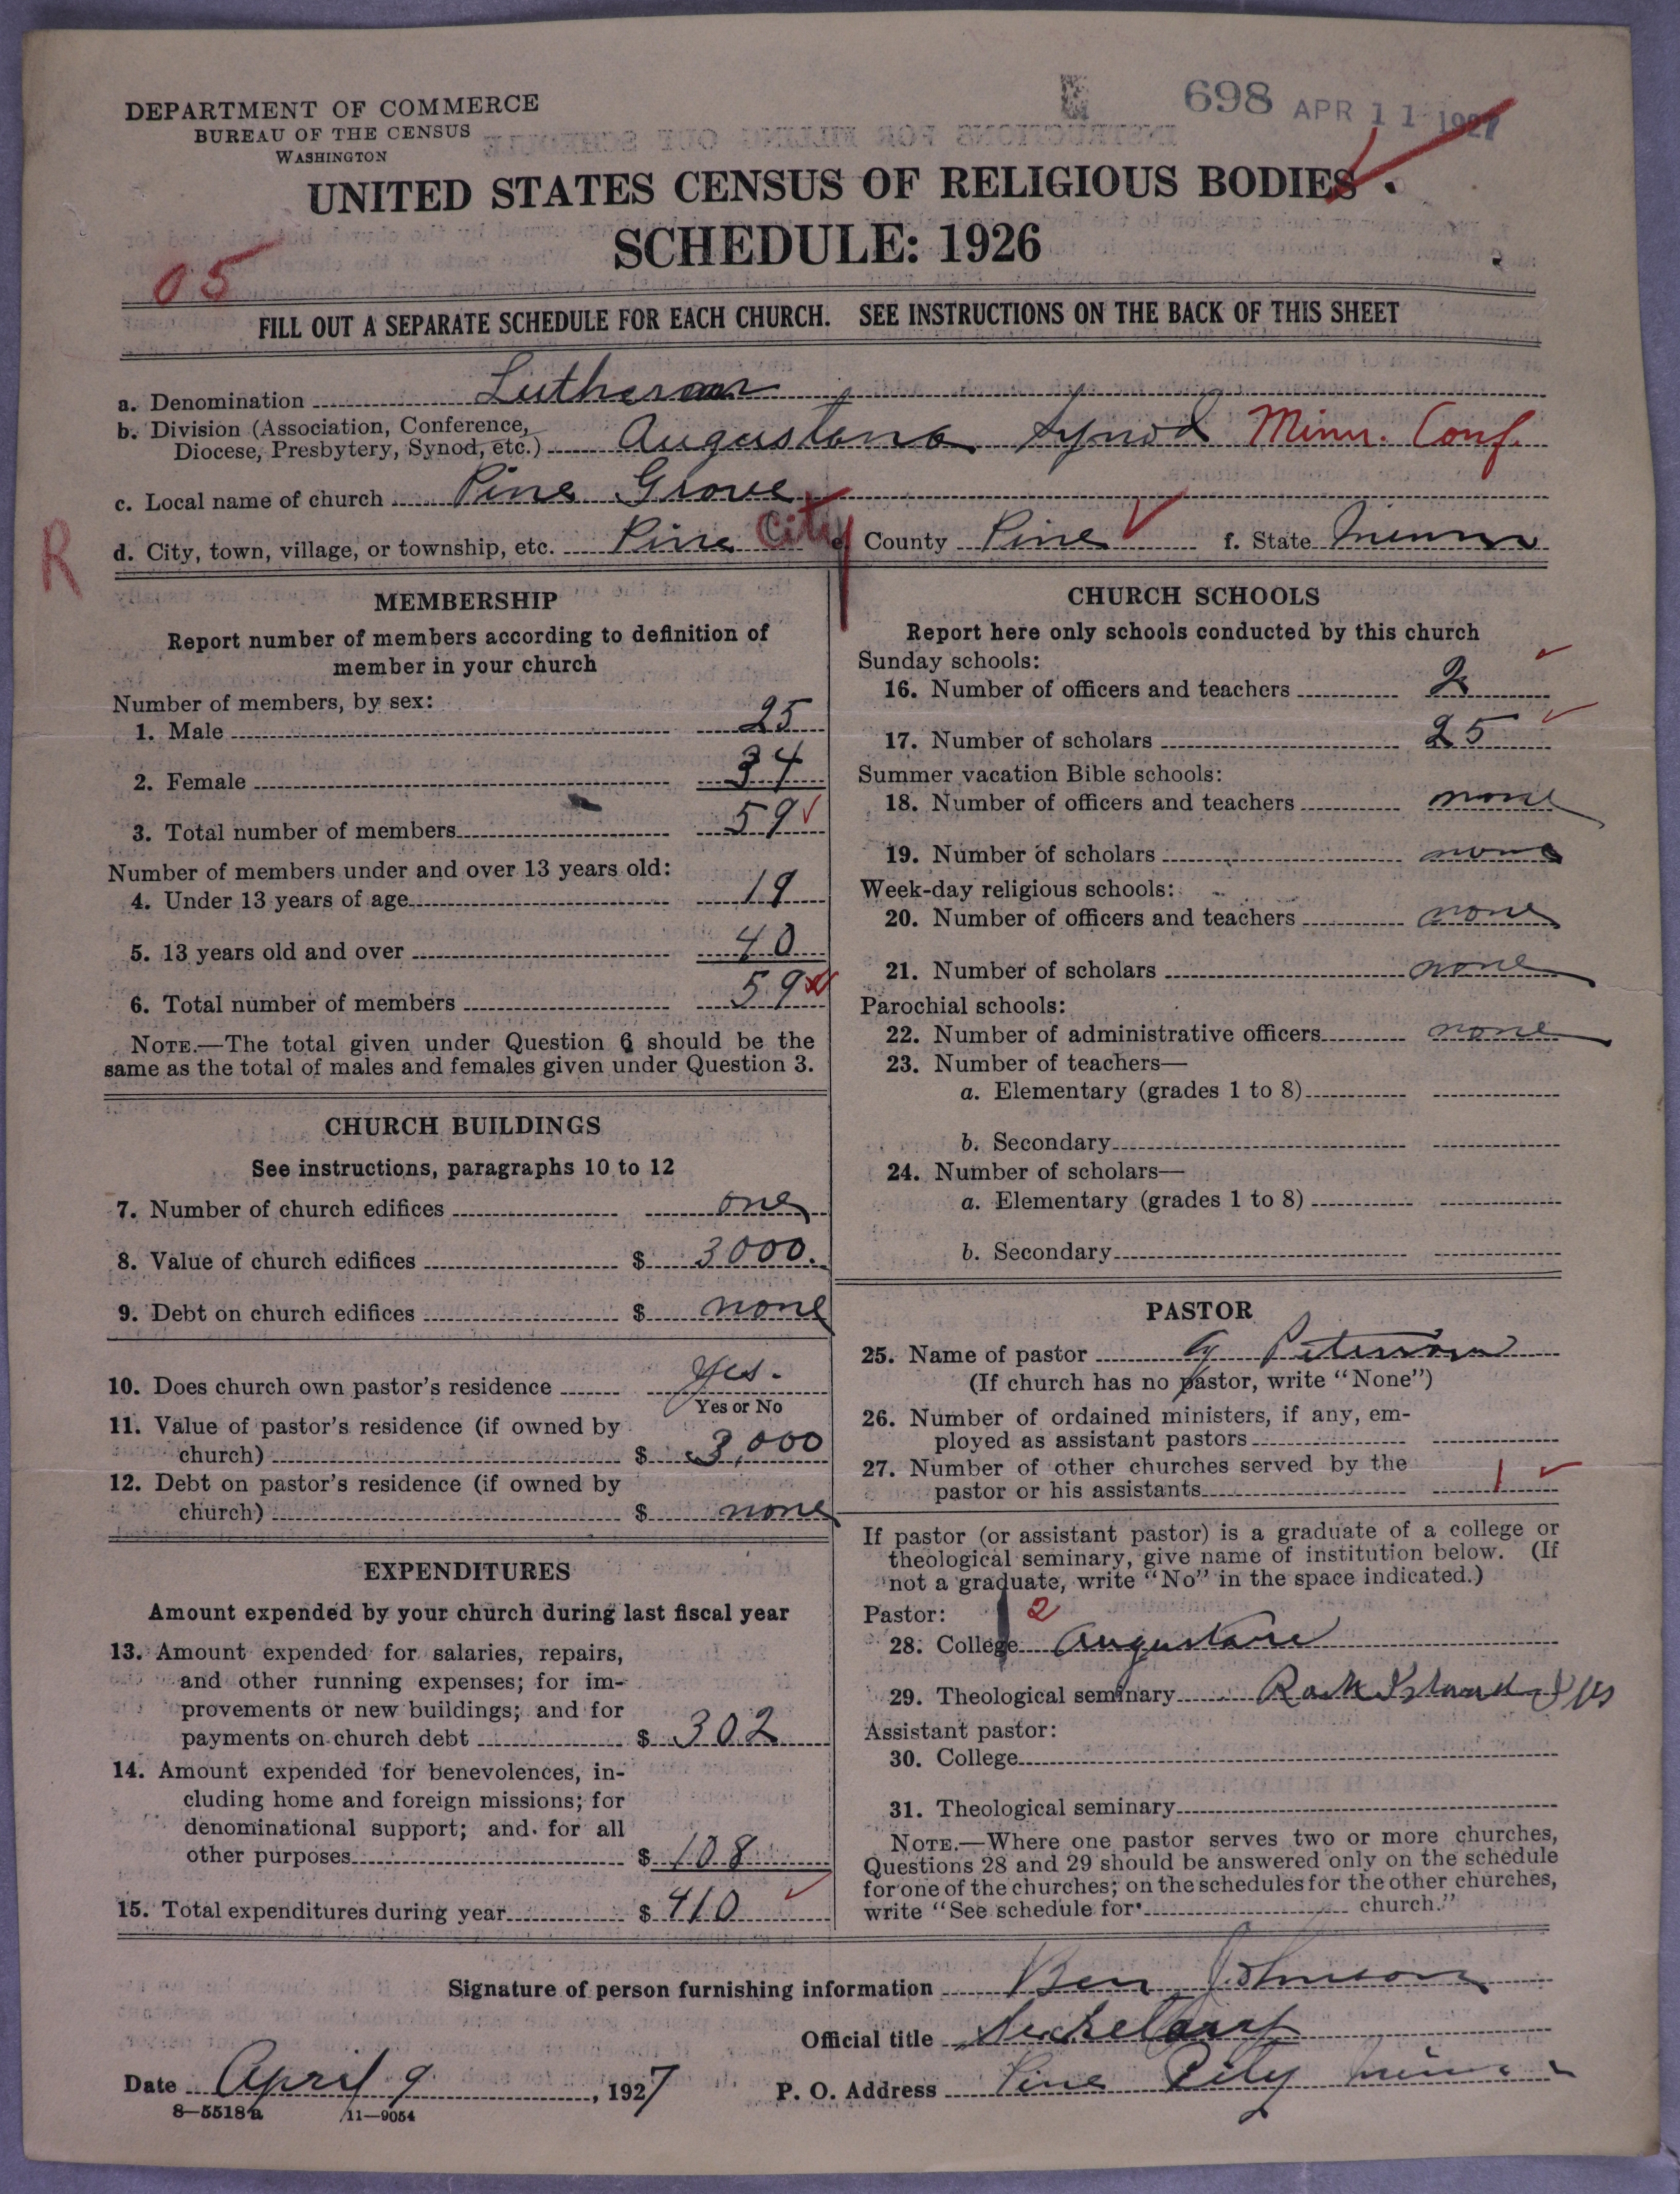 DEPARTMENT OF COMMERCE
BUREAU OF THE CENSUS
WASHINGTON
698 APR 11 1927
UNITED STATES CENSUS OF RELIGIOUS BODIES
SCHEDULE: 1926
05
FILL OUT A SEPARATE SCHEDULE FOR EACH CHURCH. SEE INSTRUCTIONS ON THE BACK OF THIS SHEET
a. Denomination Lutheran
b. Division (Association, Conference, Diocese, Presbytery, Synod, etc.) Augustana Synod Minn. Conf.
c. Local name of church Pine Grove
R
d. City, town, village, or township, etc. Pine City e. County Pine f. State Minn
MEMBERSHIP
Report number of members according to definition of
member in your church
Number of members, by sex:
1. Male 25
2. Female 34
3. Total number of members 59
Number of members under and over 13 years old:
4. Under 13 years of age 19
5. 13 years old and over 40
6. Total number of members 59
NOTE.—The total given under Question 6 should be the
same as the total of males and females given under Question 3.
CHURCH BUILDINGS
See instructions, paragraphs 10 to 12
7. Number of church edifices one
8. Value of church edifices $ 3000.
9. Debt on church edifices $ none
10. Does church own pastor's residence yes.
Yes or No
11. Value of pastor's residence (if owned by
church) $ 3,000
12. Debt on pastor's residence (if owned by
church) $ none
EXPENDITURES
Amount expended by your church during last fiscal year
13. Amount expended for salaries, repairs,
and other running expenses; for im-
provements or new buildings; and for
payments on church debt $ 302
14. Amount expended for benevolences, in-
cluding home and foreign missions; for
denominational support; and for all
other purposes $ 108
15. Total expenditures during year $ 410
CHURCH SCHOOLS
Report here only schools conducted by this church
Sunday schools:
16. Number of officers and teachers 2
17. Number of scholars 25
Summer vacation Bible schools:
18. Number of officers and teachers none
19. Number of scholars none
Week-day religious schools:
20. Number of officers and teachers none
21. Number of scholars none
Parochial schools:
22. Number of administrative officers none
23. Number of teachers—
a. Elementary (grades 1 to 8)
b. Secondary
24. Number of scholars—
a. Elementary (grades 1 to 8)
b. Secondary
PASTOR
25. Name of pastor Peterson
(If church has no pastor, write "None")
26. Number of ordained ministers, if any, em-
ployed as assistant pastors
27. Number of other churches served by the
pastor or his assistants 1
If pastor (or assistant pastor) is a graduate of a college or
theological seminary, give name of institution below. (If
not a graduate, write "No" in the space indicated.)
Pastor: 2
28. College Augustana
29. Theological seminary Rock Island Ills
Assistant pastor:
30. College
31. Theological seminary
NOTE.—Where one pastor serves two or more churches,
Questions 28 and 29 should be answered only on the schedule
for one of the churches; on the schedules for the other churches,
write "See schedule for church."
Signature of person furnishing information Ben Johnson
Official title Secketary
Date April 9, 1927 P. O. Address Pine City Minn.
8—5518a 11—9054